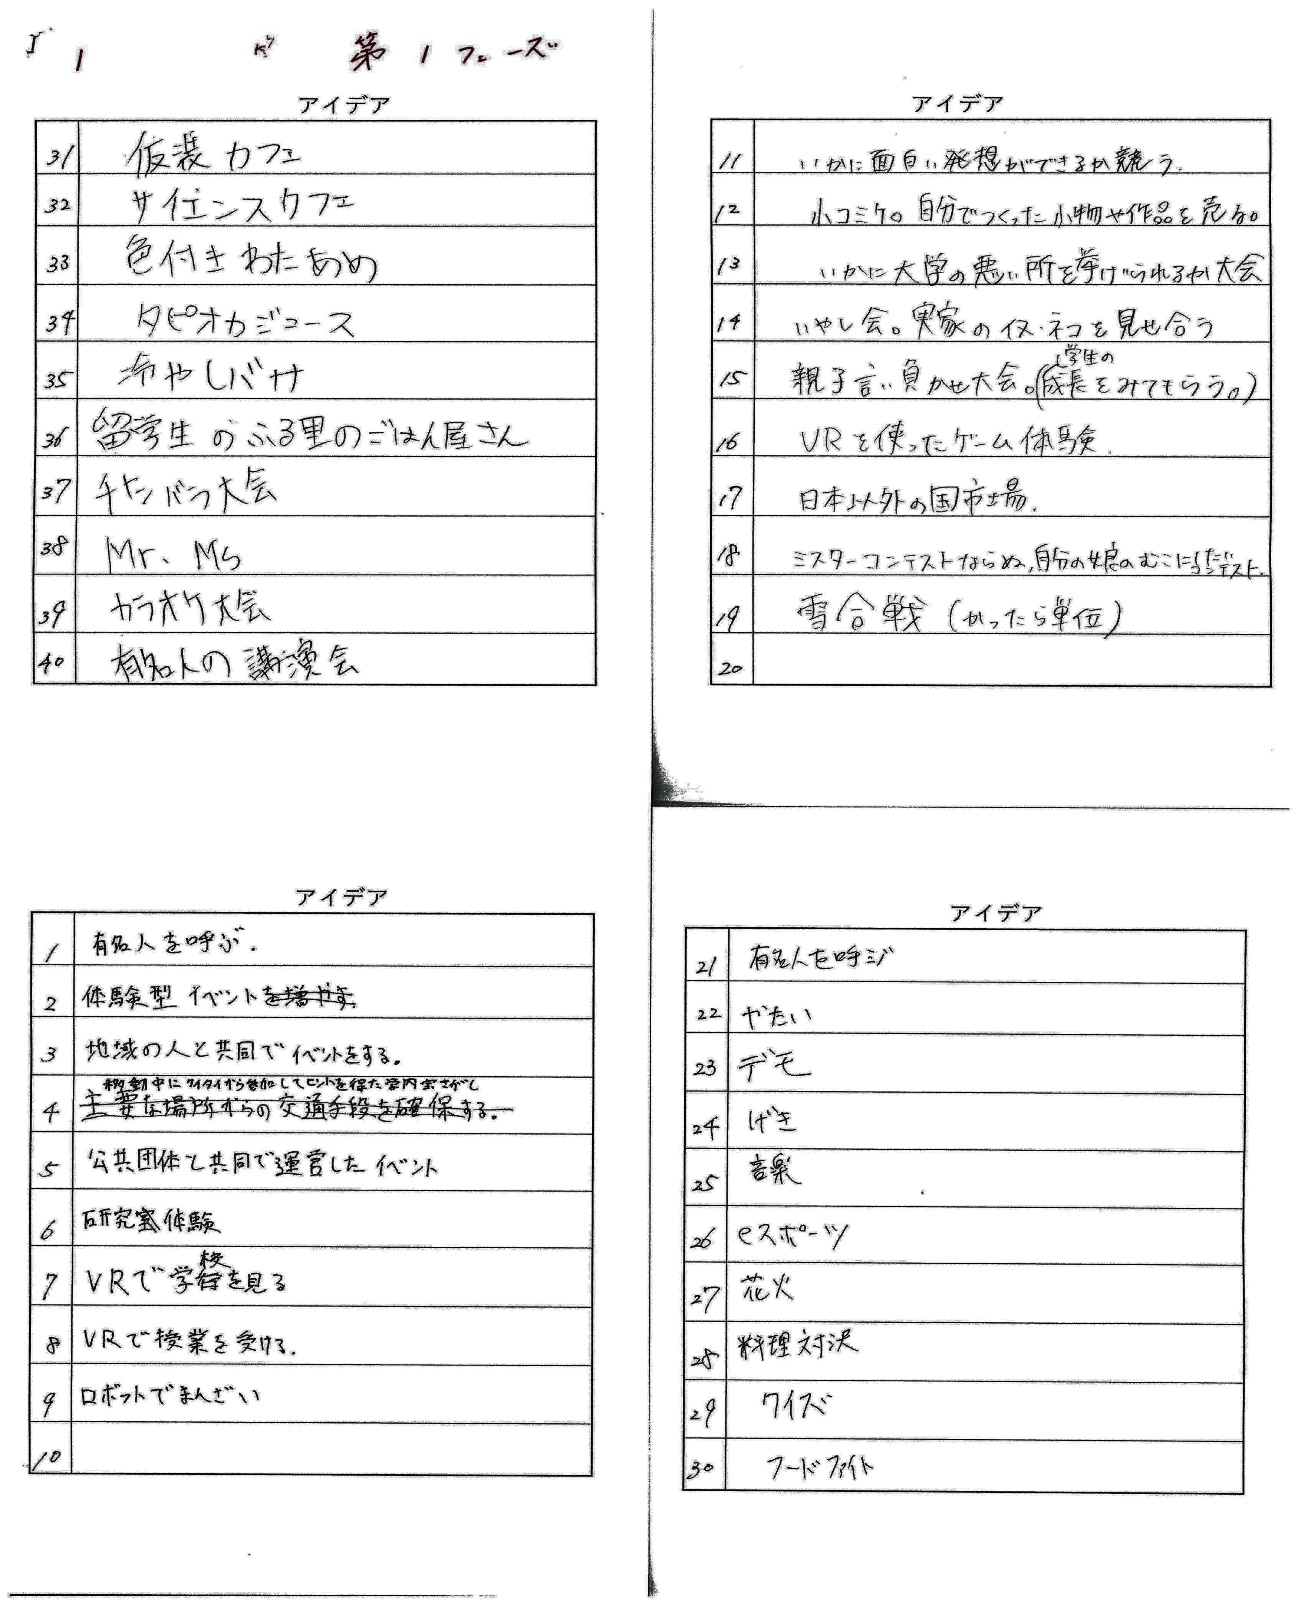 1 第1フェーズ
アイデア
31 仮装カフェ
32 サイエンスカフェ
33 色付きわたあめ
34 タピオカジュース
35 冷やしバナナ
36 留学生のふる里のごはん屋さん
37 チャンバラ大会
38 Mr、Ms
39 カラオケ大会
40 有名人の講演会
アイデア
11 いかに面白い発想ができるか競う。
12 小コミケ。自分でつくった小物や作品を売る。
13 いかに大学の悪い所を挙げられるか大会
14 いやし会。実家のイヌ・ネコを見せ合う
学生の
15 親子言い負かせ大会。(成長をみてもらう。)
16 VRを使ったゲーム体験.
17 日本以外の国市場.
18 ミスターコンテストならぬ,自分の娘のむこにしたいコンテスト.
19 雪合戦(かったら単位)
20
アイデア
1 有名人を呼ぶ.
2 体験型イベントを増やす。
3 地域の人と共同でイベントをする。
移動中に から参加してヒントを得た学内宝さがし
4 主要な場所からの交通手段を確保する。
5 公共団体と共同で運営したイベント
6 研究室体験
校
7 VRで学を見る
8 VRで授業を受ける.
9 ロボットでまんざい
10
アイデア
21 有名人を呼ぶ
22 やたい
23 デモ
24 げき
25 音楽
26 eスポーツ
27 花火
28 料理対決
29 クイズ
30 フードファイト